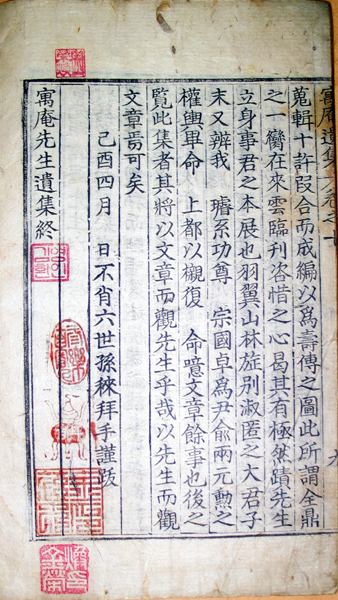 寓庵遺集卷之
蒐輯十許段合而成編以爲壽傳之圖此所謂全鼎
之一臠在來雲臨刊咨惜之心曷其有極然蹟先生
立身事君之本展也羽翼山林旌別淑慝之大君子
末又辨我 璿系功尊 宗國卓爲尹兪兩元勲之
權輿畢命 上都以櫬復 命噫文章餘事也後之
覽此集者其將以文章而觀先生乎哉以先生而觀
文章焉可矣
己酉四月 日不肖六世孫 拜手謹跋
寓庵先生遺集終